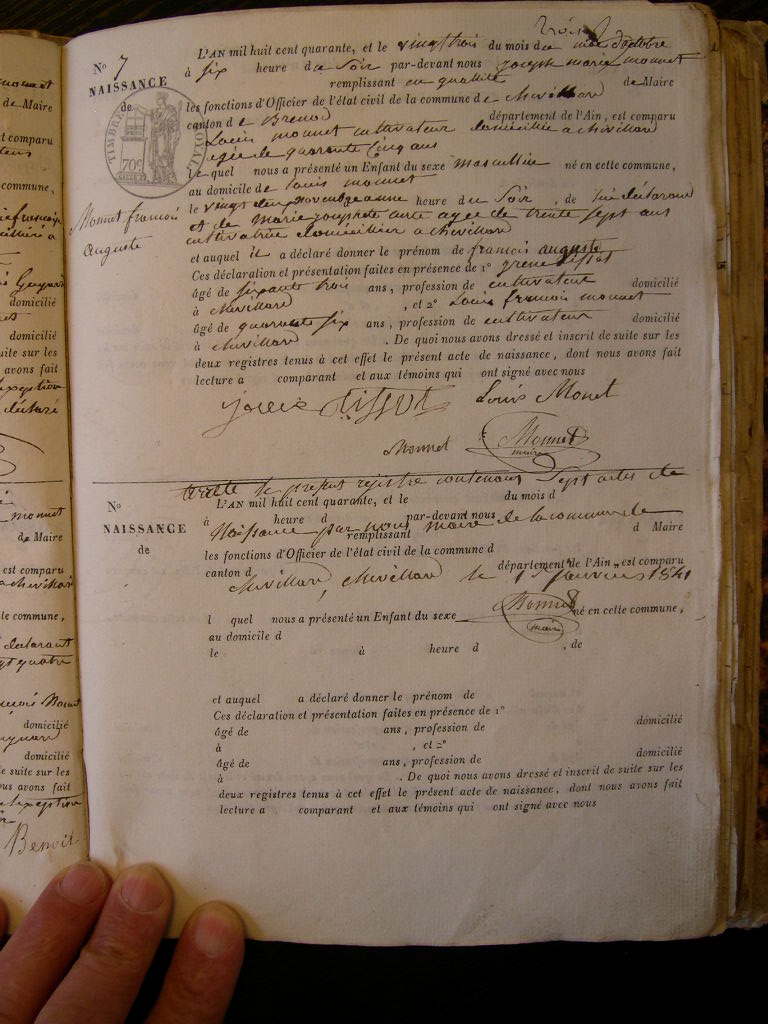 N° 7
NAISSANCE
de
Monnet françois
auguste
TIMBRE ROYAL
70c
L'AN mil huit cent quarante, et le vingt trois du mois de octobre
à six heure du Soir par-devant nous joseph marie monnet
remplissant en qualité de Maire
les fonctions d'Officier de l'état civil de la commune de chevillard
canton de Brenod département de l'Ain, est comparu
Louis monnet cultivateur domicilié a chevillard
agée de quarante Cinq ans
le quel nous a présenté un Enfant du sexe masculin né en cette commune,
au domicile de Louis monnet
le vingt deux heure du Soir, de lui déclarant
et de marie josephete agée de trente sept ans
cultivatrice domicilier a chevillard
et auquel il a déclaré donner le prénom de françois auguste
Ces déclaration et présentation faites en présence de 1°
âgé de sixante trois ans, profession de cultivateur domicilié
à chevillard, et 2° Louis françois monnet
âgé de quarante six ans, profession de cultivateur domicilié
à chevillard. De quoi nous avons dressé et inscrit de suite sur les
deux registres tenus à cet effet le présent acte de naissance, dont nous avons fait
lecture a comparant et aux témoins qui ont signé avec nous
Tissot Louis Monet
Monnet Monnet
maire
le présent registre contenant Sept actes de
N°
NAISSANCE
de
L'AN mil huit cent quarante, et le du mois d
à heure d par-devant nous
Naissance par nous maire de la commune de
remplissant d Maire
les fonctions d'Officier de l'état civil de la commune d
canton d département de l'Ain, est comparu
chevillard, chevillard le janvier 1841
Monnet
maire
l quel nous a présenté un Enfant du sexe né en cette commune,
au domicile d
le à heure d, de
et auquel a déclaré donner le prénom de
Ces déclaration et présentation faites en présence de 1°
âgé de ans, profession de domicilié
à, et 2°
âgé de ans, profession de domicilié
à. De quoi nous avons dressé et inscrit de suite sur les
deux registres tenus à cet effet le présent acte de naissance, dont nous avons fait
lecture a comparant et aux témoins qui ont signé avec nous
monnet
de Maire
est comparu
commune,
domicilié
domicilié
suite sur les
avons fait
exception
déclaré
monnet
de Maire
est comparu
a chevillard
te commune,
declarant
Monnet
domicilié
domicilié
de suite sur les
us avons fait
exception
Benoit